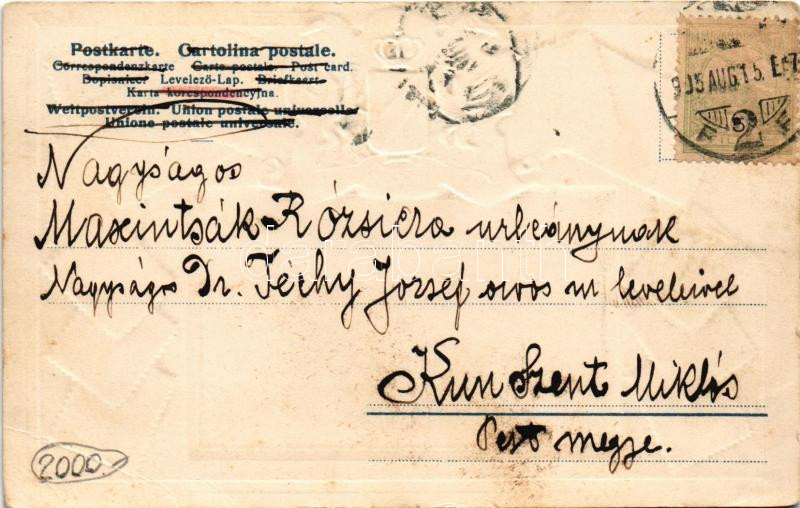 Postkarte. Cartolina postale.
Correspondenzkarte Carte postale. Post card.
Dopisnice. Levelező-Lap. Briefkaart.
Karta korespondencyjna.
Weltpostverein. Union postale universelle.
Unione postale universale.
905 AUG 15. E
2
Nagyságos
Maxintsák Rózsicza urleánynak
Nagyságos Dr. Téchy József orvos ur leveleivel
Kun Szent Miklós
Pest megye.
2000.-
darabanth